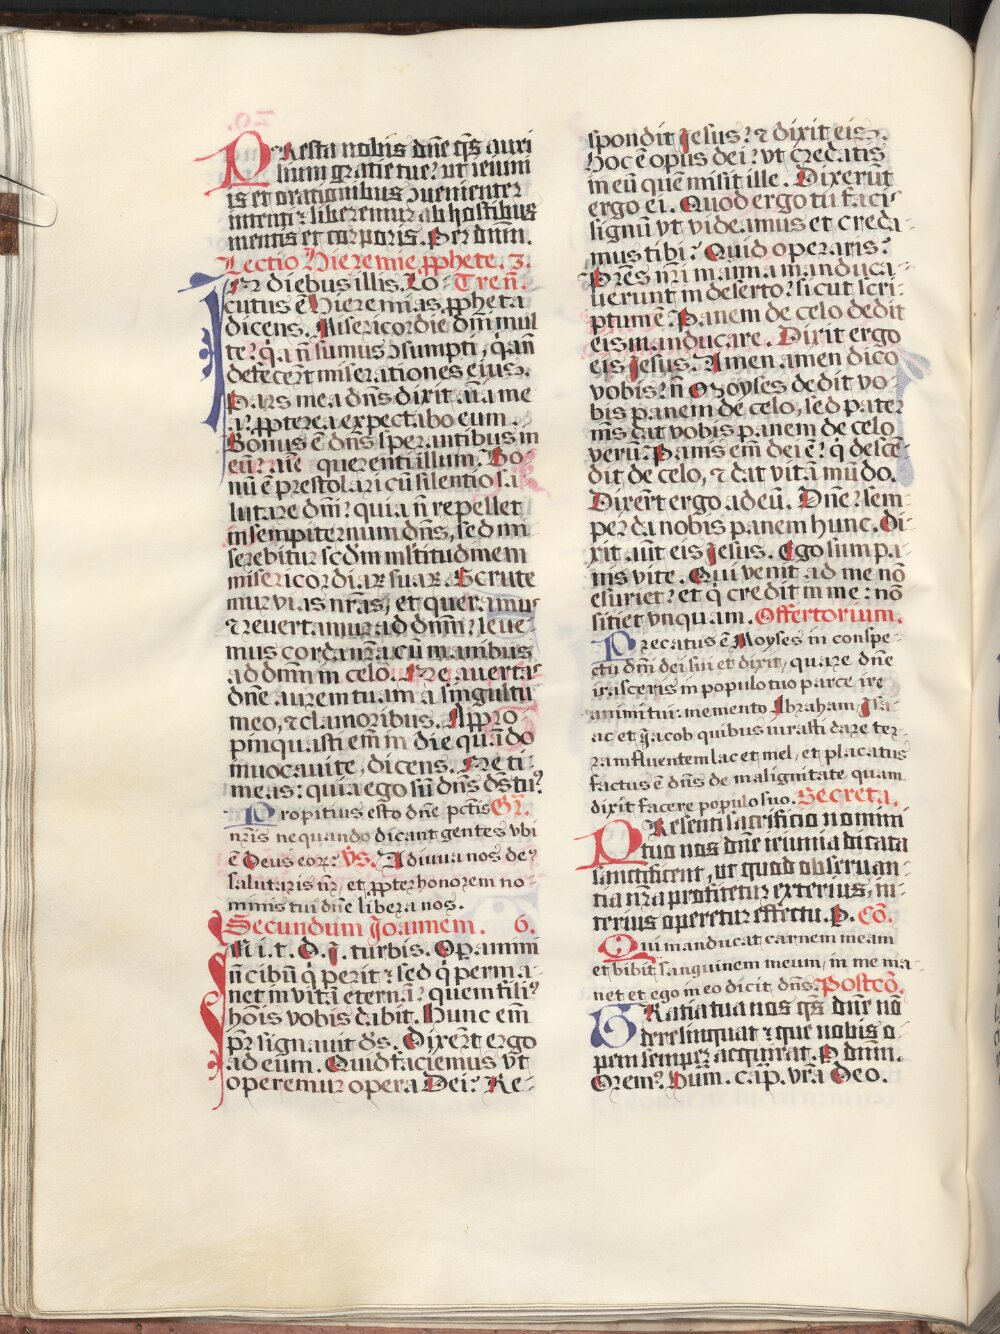 PResta nobis dñe q̃s auxi
lium gratie tue? ut ieiuni
is et orationibus ꝯuenienter
intenti: liberemur ab hostibus
mentis et corporis. Per dnm̃.
Lectio Hieremie ꝓphete. 3.
IN diebus illis. Lo- Treñ.
cutus ẽ Hieremias ꝓpheta
dicens. Misericordie dñi mul
te? q̇a ñ sumus ꝯsumpti, q̇a ñ
defecer̃t miserationes eius.
Pars mea dñs dixit aĩa me
a?, ꝓpterea expectabo eum.
Bonus ẽ dñs sperantibus in
eũ? aĩe querenti illum. Bo-
nũ ẽ prestolari cũ silentio sa-
lutare dñi? quia ñ repellet
in sempiternum dñs, sed mi
serebitur scdm mltitudinem
misericordiaꝝ suaꝝ. Scrute
mur vias nr̃as, et queramus
⁊ reuertamur ad dnm̃? leue-
mus corda nr̃a cũ manibus
ad dnm̃ in celos. Ne auertas
dñe aurem tuam a singultu
meo, ⁊ clamoribus. Appro-
pinquasti em̃ in die quãdo
inuocaui te, dicens. Ne ti-
meas: quia ego sũ dñs ds̃ tu?
Propitius esto dñe pctĩs Gr̃.
nr̃is nequando dicant gentes vbi
ẽ Deus eoꝝ? Vs̃. Adiuua nos de?
salutaris nr̃, et ꝓpter honorem no-
minis tui dñe libera nos.
Secundum Joannem. 6.
IN i. t. D. J. turbis. Operamini
ñ cibũ q̇ perit: sed q̇ perma-
net in vitã eternã? quem fili?
hoĩs vobis dabit. Hunc em̃
pr̃ signauit ds̃. Dixer̃t ergo
ad eum. Quid faciemus vt
operemur opera Dei? Re-
spondit Jesus? ⁊ dixit eis.
Hoc ẽ opus dei? vt credatis
in eũ quẽ misit ille. Dixerũt
ergo ei. Quod ergo tu facis
signũ vt videamus et creda-
mus tibi? Quid operaris?
Pr̃es nr̃i manna manduca-
uerunt in deserto? sicut scri-
ptum ẽ. Panem de celo dedit
eis manducare. Dixit ergo
eis Jesus. Amen amen dico
vobis? ñ Moyses dedit vo-
bis panem de celo, sed pater
m̃s dat vobis panem de celo
verũ. Panis em̃ dei ẽ? q̇ descẽ-
dit de celo, ⁊ dat vitã mũdo.
Dixer̃t ergo ad eũ. Dñe? sem-
per da nobis panem hunc. Di-
xit aut eis Jesus. Ego sum pa-
nis vite. Qui venit ad me nõ
esuriet? et q̇ credit in me: nõ
sitiet vnquam. Offertorium.
Precatus ẽ Moyses in conspe-
ctu dñi dei sui et dixit, quare dñe
irasceris in populo tuo parce ire
animi tui: memento Abraham, Isa-
ac et Jacob quibus iurasti dare ter-
ram fluentem lac et mel, et placatus
factus ẽ dñs de malignitate quam
dixit facere populo suo. Secreta.
PResenti sacrificio nomini
tuo nos dñe ieiunia dicata
sanctificent, ut quod obseruan-
tia nr̃a profitetur exterius, in-
terius operetur effectu. P. Cõ.
Qui manducat carnem meam
et bibit sanguinem meum, in me ma-
net et ego in eo dicit dñs. Postcõ.
GRatia tua nos q̃s dñe nõ
derelinquat: que nobis o-
pem semper acquirat. P dnm̃.
Orem? Hum. cap. vr̃a Deo.